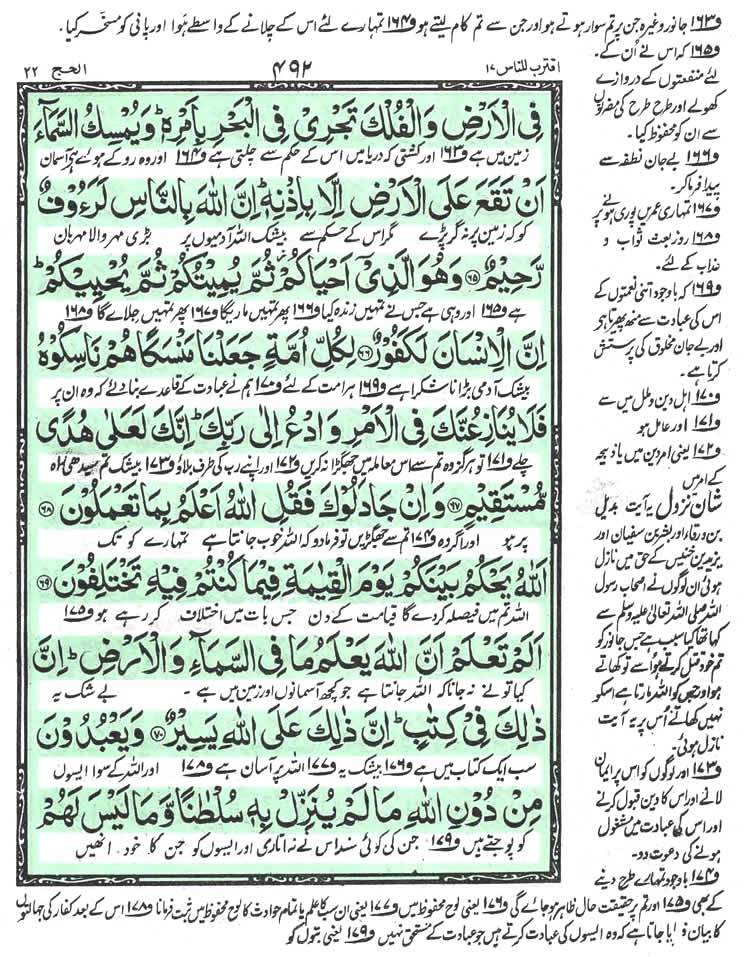 و١٦٣ جانور وغیرہ جن پر تم سوار ہوتے ہو اور جن سے تم کام لیتے ہو و١٦٤ تمہارے لئے اس کے چلانے کے واسطے ہوا اور پانی کو مسخر کیا۔
اقترب للناس ١٧
٤٩٢
الحج ٢٢
فِی الْاَرْضِ وَالْفُلْكَ تَجْرِیْ فِی الْبَحْرِ بِاَمْرِهٖؕ وَیُمْسِكُ السَّمَآءَ
زمین میں ہے و١٦٣ اور کشتی کہ دریا میں اس کے حکم سے چلتی ہے و١٦٤ اور وہ روکے ہوئے ہے آسمان
اَنْ تَقَعَ عَلَی الْاَرْضِ اِلَّا بِاِذْنِهٖؕ اِنَّ اللّٰهَ بِالنَّاسِ لَرَءُوْفٌ
کو کہ زمین پر نہ گر پڑے مگر اس کے حکم سے بیشک اللہ آدمیوں پر بڑی مہر والا مہربان
رَّحِیْمٌ ﴿٦٥﴾ وَهُوَ الَّذِیْۤ اَحْیَاكُمْ ؗ ثُمَّ یُمِیْتُكُمْ ثُمَّ یُحْیِیْكُمْؕ
ہے و١٦٥ اور وہی ہے جس نے تمہیں زندہ کیا و١٦٦ پھر تمہیں ماریگا و١٦٧ پھر تمہیں جلائے گا و١٦٨
اِنَّ الْاِنْسَانَ لَكَفُوْرٌ ﴿٦٦﴾ لِكُلِّ اُمَّةٍ جَعَلْنَا مَنْسَكًا هُمْ نَاسِكُوْهُ
بیشک آدمی بڑا ناشکرا ہے و١٦٩ ہر امت کے لئے و١٧٠ ہم نے عبادت کے قاعدے بنا دئے کہ وہ ان پر
فَلَا یُنَازِعُنَّكَ فِی الْاَمْرِ وَادْعُ اِلٰی رَبِّكَؕ اِنَّكَ لَعَلٰی هُدًی
چلے و١٧١ تو ہرگز وہ تم سے اس معاملہ میں جھگڑا نہ کریں و١٧٢ اور اپنے رب کی طرف بلاؤ و١٧٣ بیشک تم سیدھی راہ
مُّسْتَقِیْمٍ ﴿٦٧﴾ وَاِنْ جَادَلُوْكَ فَقُلِ اللّٰهُ اَعْلَمُ بِمَا تَعْمَلُوْنَ ﴿٦٨﴾
پر ہو اور اگر وہ و١٧٤ تم سے جھگڑیں تو فرما دو کہ اللہ خوب جانتا ہے تمہارے کوتک
اَللّٰهُ یَحْكُمُ بَیْنَكُمْ یَوْمَ الْقِیٰمَةِ فِیْمَا كُنْتُمْ فِیْهِ تَخْتَلِفُوْنَ ﴿٦٩﴾
اللہ تم میں فیصلہ کر دے گا قیامت کے دن جس بات میں اختلاف کر رہے ہو و١٧٥
اَلَمْ تَعْلَمْ اَنَّ اللّٰهَ یَعْلَمُ مَا فِی السَّمَآءِ وَالْاَرْضِؕ اِنَّ
کیا تو نے نہ جانا کہ اللہ جانتا ہے جو کچھ آسمانوں اور زمین میں ہے۔ بے شک یہ
ذٰلِكَ فِیْ كِتٰبٍؕ اِنَّ ذٰلِكَ عَلَی اللّٰهِ یَسِیْرٌ ﴿٧٠﴾ وَیَعْبُدُوْنَ
سب ایک کتاب میں ہے و١٧٦ بیشک یہ و١٧٧ اللہ پر آسان ہے و١٧٨ اور اللہ کے سوا ایسوں
مِنْ دُوْنِ اللّٰهِ مَا لَمْ یُنَزِّلْ بِهٖ سُلْطٰنًا وَّمَا لَیْسَ لَهُمْ
کو پوجتے ہیں و١٧٩ جن کی کوئی سند اس نے نہ اتاری اور ایسوں کو جن کا خود انھیں
و١٦٥ کہ اس نے اُن کے
لئے منفعتوں کے دروازے
کھولے اور طرح طرح کی مضرتوں
سے ان کو محفوظ کیا۔
و١٦٦ بے جان نطفہ سے
پیدا فرما کر۔
و١٦٧ تمہاری عمریں پوری ہونے پر
و١٦٨ روز بعث ثواب و
عذاب کے لئے۔
و١٦٩ کہ باوجود اتنی نعمتوں کے
اس کی عبادت سے منھ پھیرتا ہے
اور بے جان مخلوق کی پرستش
کرتا ہے۔
و١٧٠ اہل دین و ملل میں سے
و١٧١ اور عامل ہو
و١٧٢ یعنی امر دین میں یا ذبیحہ
کے امر میں
شان نزول یہ آیت بدیل
بن ورقاء اور بشر بن سفیان اور
یزید بن خنیس کے حق میں نازل
ہوئی ان لوگوں نے اصحاب رسول
اللہ صلی اللہ تعالٰی علیہ وسلم سے
کہا تھا کیا سبب ہے جس جانور کو
تم خود قتل کرتے ہو اسے تو کھاتے
ہو اور جس کو اللہ مارتا ہے اسکو
نہیں کھاتے اُس پر یہ آیت
نازل ہوئی۔
و١٧٣ اور لوگوں کو اس پر ایمان
لانے اور اس کا دین قبول کرنے
اور اس کی عبادت میں مشغول
ہونے کی دعوت دو۔
و١٧٤ باوجود تمہارے طرح دینے
کے بھی و١٧٥ اور تم پر حقیقت حال ظاہر ہو جائے گی و١٧٦ یعنی لوح محفوظ میں و١٧٧ یعنی ان سب کا علم یا تمام حوادث کا لوح محفوظ میں ثبت فرمانا و١٧٨ اس کے بعد کفار کی جہالتوں
کا بیان فرمایا جاتا ہے کہ وہ ایسوں کی عبادت کرتے ہیں جو عبادت کے مستحق نہیں و١٧٩ یعنی بتوں کو